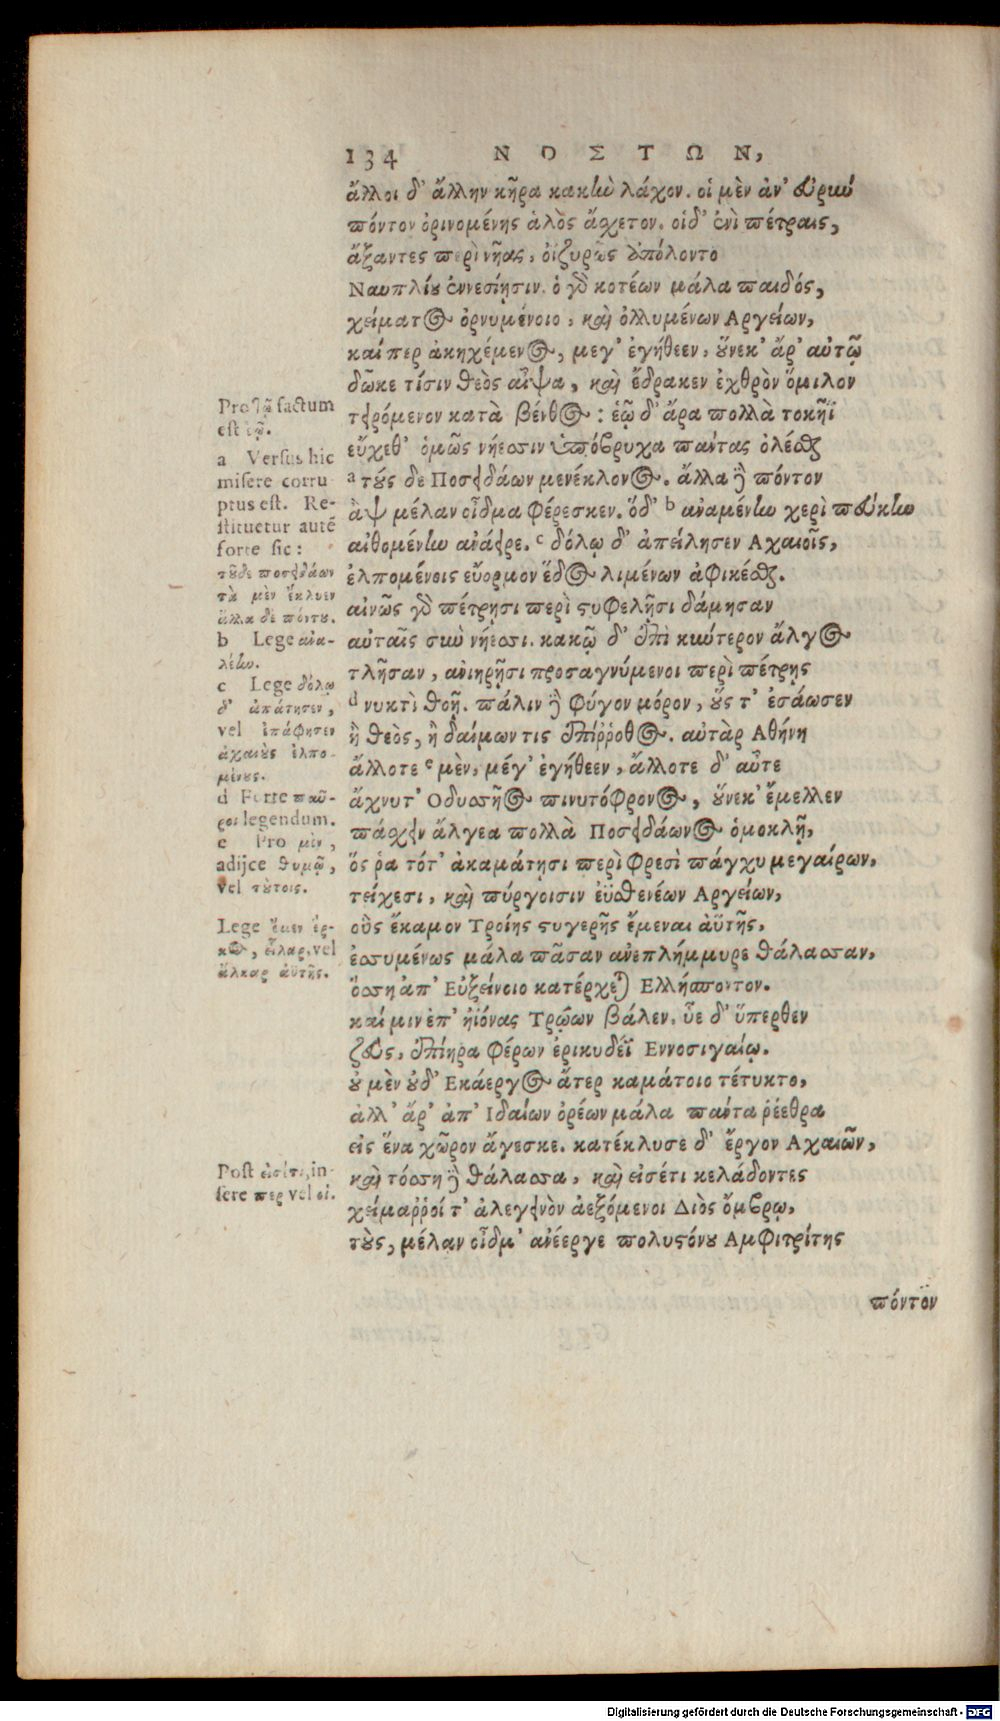 134 ΝΟΣΤΩΝ,
ἄλλοι δ' ἄλλην κῆρα κακὴν λάχον. οἱ μὲν ἀν' εὐρὺν
πόντον ὀρινομένης ἁλὸς ἄσχετον. οἱ δ' ἐνὶ πέτραις,
ἄξαντες περὶ νῆας, οἰζυρῶς ἀπόλοντο
Ναυπλίου ἐννεσίῃσιν. ὁ γὰρ κοτέων μάλα παιδός,
χείματος ὀρνυμένοιο, καὶ ὀλλυμένων Αργείων,
καίπερ ἀκηχέμενος, μεγ' ἐγήθεεν, οὕνεκ' ἄρ' αὐτῷ
δῶκε τίσιν θεὸς αἶψα, καὶ ἔδρακεν ἐχθρὸν ὅμιλον
τειρόμενον κατὰ βένθος: ἑῷ δ' ἄρα πολλὰ τοκῆϊ
εὔχεθ' ὁμῶς νήεσσιν ὑπόβρυχα πάντας ὀλέσαι
a τούς δε Ποσειδάων μενέκλονος. ἄλλα δὲ πόντον
ἂψ μέλαν οἶδμα φέρεσκεν. ὅδ' b αναμένην χερὶ πεύκην
αἰθομένην ανάειρε. c δόλῳ δ' ἀπείλησεν Αχαιοῖς,
ἐλπομένοις εὔορμον ἕδος λιμένων ἀφικέσαι.
αἰνῶς γὰρ πέτρῃσι περὶ στυφελῇσι δάμησαν
αὐταῖς σὺν νήεσσι. κακῷ δ' ἐπὶ κύντερον ἄλγος
τλῆσαν, ανιηρῇσι προσαγνύμενοι περὶ πέτρῃς
d νυκτὶ θοῇ. πάλιν δὲ φύγον μόρον, οὕς τ' ἐσάωσεν
ἢ θεὸς, ἢ δαίμων τις ἐπίῤῥοθος. αὐτὰρ Αθήνη
ἄλλοτε e μὲν, μέγ' ἐγήθεεν, ἄλλοτε δ' αὖτε
ἄχνυτ' Οδυσσῆος πινυτόφρονος, οὕνεκ' ἔμελλεν
πάσχειν ἄλγεα πολλὰ Ποσειδάωνος ὁμοκλῇ,
ὅς ῥα τότ' ἀκαμάτῃσι περὶ φρεσὶ πάγχυ μεγαίρων,
τείχεσι, καὶ πύργοισιν ἐϋσθενέων Αργείων,
οὓς ἔκαμον Τροίης στυγερῆς ἔμεναι ἀϋτῆς,
ἐσσυμένως μάλα πᾶσαν ανεπλήμμυρε θάλασσαν,
ὅσση ἀπ' Εὐξείνοιο κατέρχεται Ελλήσποντον.
καί μιν ἐπ' ἠϊόνας Τρώων βάλεν. ὗε δ' ὕπερθεν
ζεὺς, ἐπίηρα φέρων ἐρικυδέϊ Εννοσιγαίῳ.
οὐ μὲν οὐδ' Εκάεργος ἄτερ καμάτοιο τέτυκτο,
ἀλλ' ἄρ' ἀπ' Ιδαίων ὀρέων μάλα πάντα ῥέεθρα
εἰς ἕνα χῶρον ἄγεσκε. κατέκλυσε δ' ἔργον Αχαιῶν,
καὶ τόσση δὲ θάλασσα, καὶ εἰσέτι κελάδοντες
χείμαῤῥοί τ' ἀλεγεινὸν ἀεξόμενοι Διὸς ὄμβρῳ,
τοὺς, μέλαν οἶδμ' ανέεργε πολυστόνου Αμφιτρίτης
πόντον
Pro τῷ factum
est ἑῷ.
a Versus hic
misere corru
ptus est. Re-
stituetur autē
forte sic:
τοῦδε ποσειδάων
τὰ μὲν ἔκλυεν
ἄλλα δὲ πόντου.
b Lege ανα-
λέην.
c Lege δόλῳ
δ' ἀπάτησεν,
vel ἐπάφησεν
ἀχαιοὺς ἐλπο-
μένους.
d Forte παῦ-
ροι legendum.
e Pro μὲν,
adijce θυμῷ,
vel τούτοις.
Lege ἔμεν ἕρ-
κος, εἶλαρ, vel
ἄλκαρ ἀϋτῆς.
Post εἰσέτι, in-
sere περ vel οἱ.
Digitalisierung gefördert durch die Deutsche Forschungsgemeinschaft - DFG